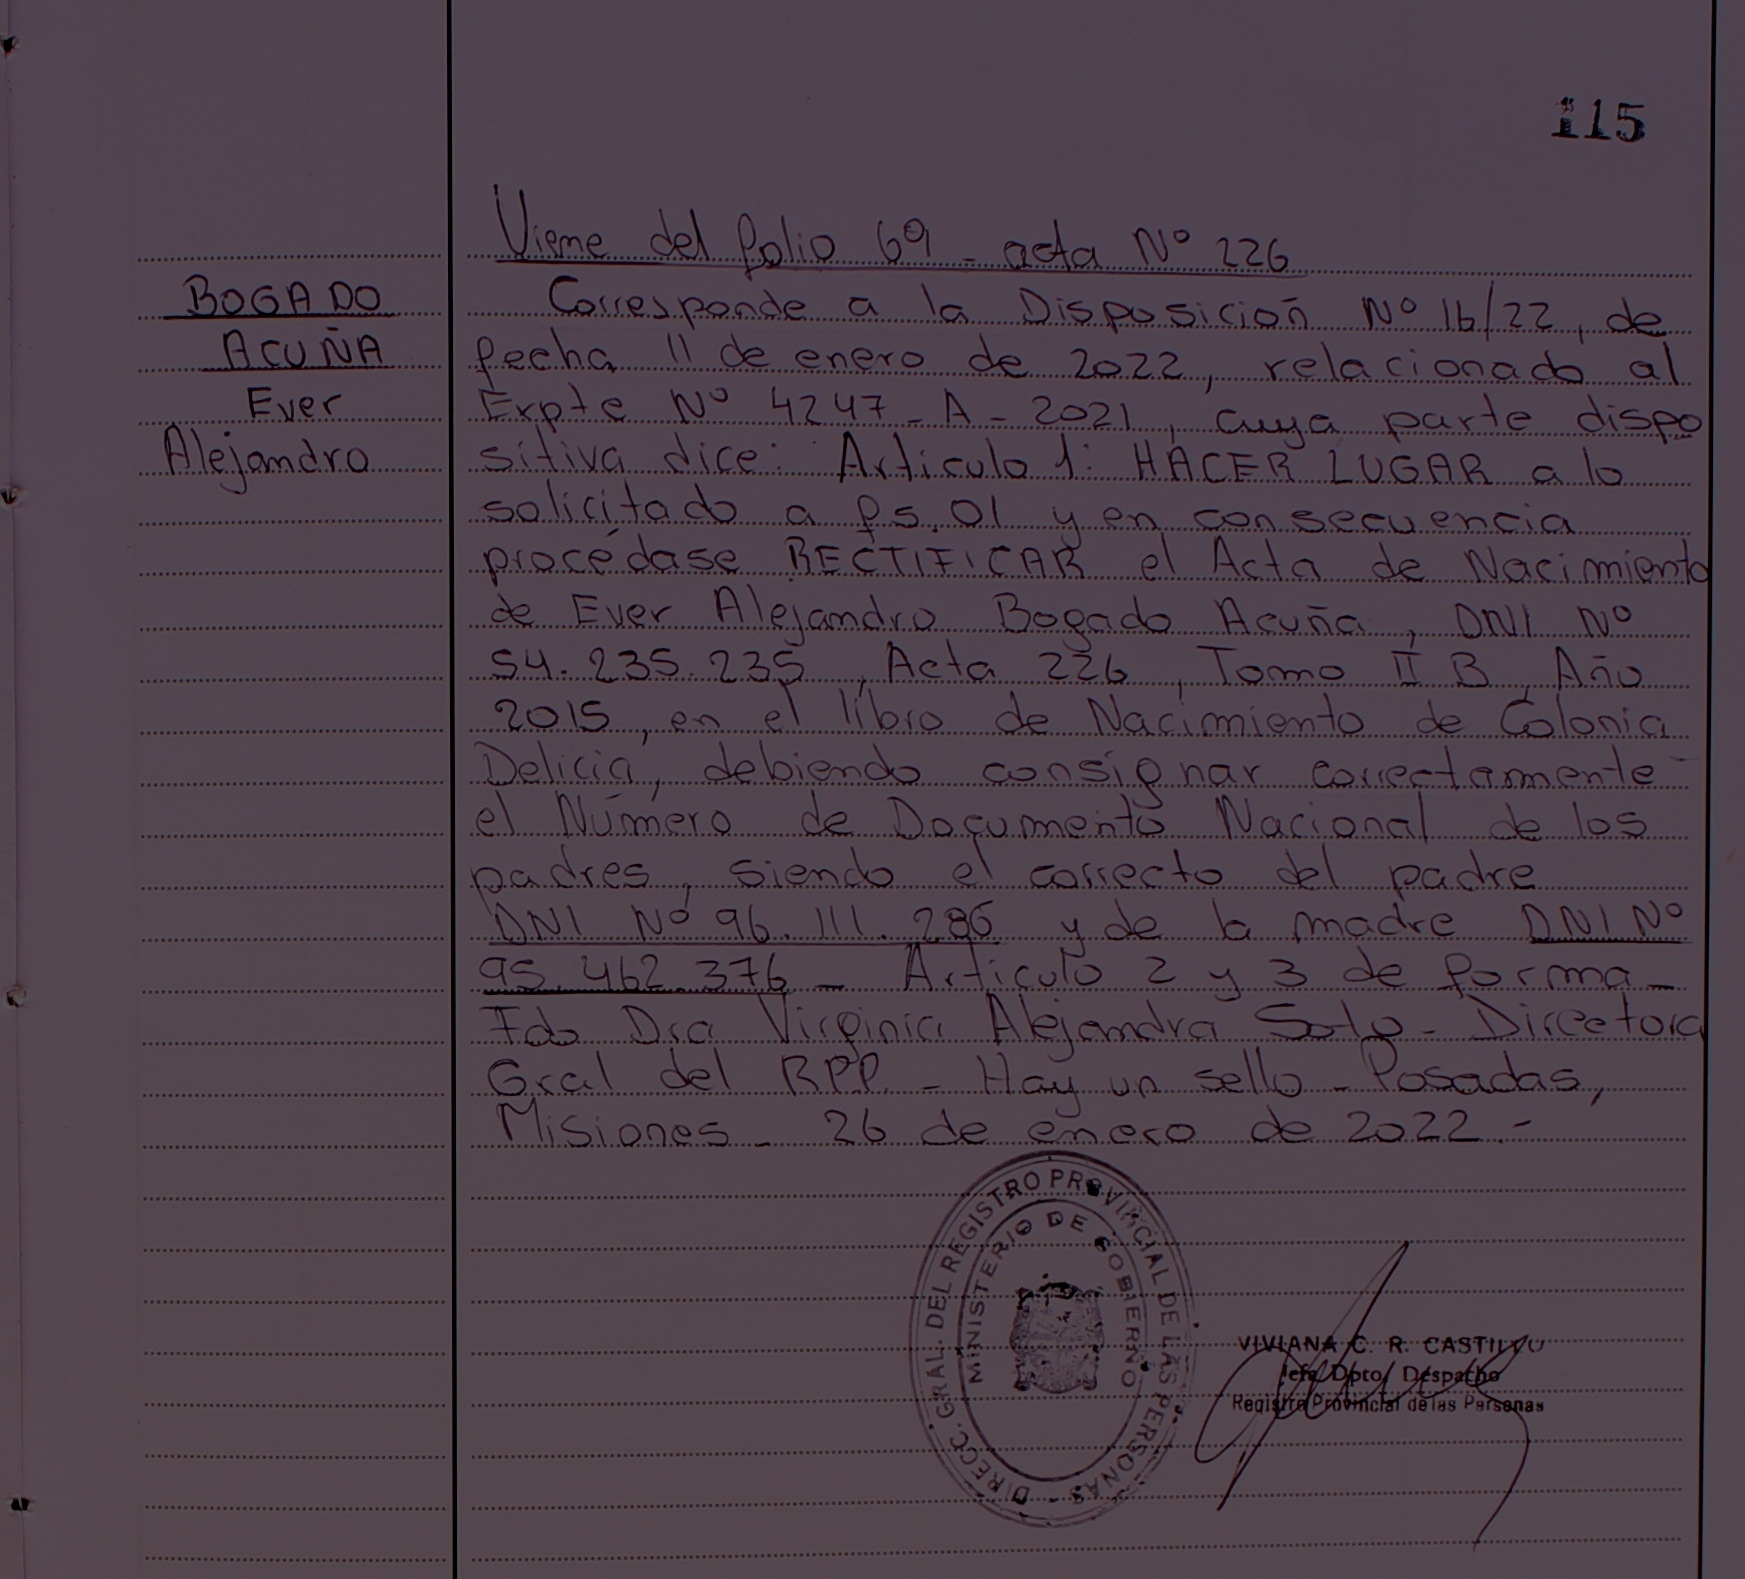 115
Viene del folio 69 - acta Nº 226
BOGADO
ACUÑA
Ever
Alejandro
Corresponde a la Disposición Nº 16/22, de
fecha 11 de enero de 2022, relacionado al
Expte Nº 4247-A-2021, cuya parte dispo
sitiva dice: Artículo 1: HACER LUGAR a lo
solicitado a fs. 01 y en consecuencia
procédase RECTIFICAR el Acta de Nacimiento
de Ever Alejandro Bogado Acuña, DNI Nº
54.235.235, Acta 226, Tomo II B, Año
2015, en el libro de Nacimiento de Colonia
Delicia, debiendo consignar correctamente
el Número de Documento Nacional de los
padres, siendo el correcto del padre
DNI Nº 96.111.286 y de la madre DNI Nº
95.462.376 - Artículo 2 y 3 de forma -
Fdo Dra Virginia Alejandra Soto - Directora
Gral del RPP. - Hay un sello - Posadas,
Misiones - 26 de enero de 2022.-
DIRECC. GRAL. DEL REGISTRO PROVINCIAL DE LAS PERSONAS -
MINISTERIO DE GOBIERNO
VIVIANA C. R. CASTILLO
Jefe Dpto Despacho
Registro Provincial de las Personas